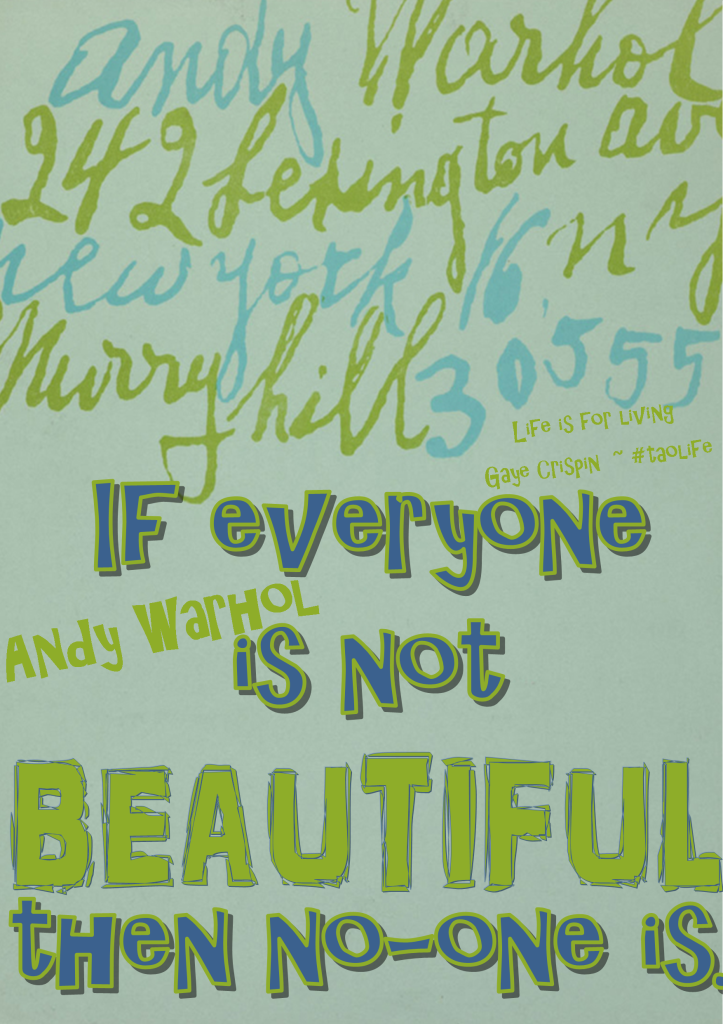 andy Warhol
242 Lexington av
new york 16, ny
Murry hill 30555
Life is for living
Gaye Crispin ~ #taoLife
IF everyone
Andy Warhol
is not
BEAUTIFUL
then no-one is.